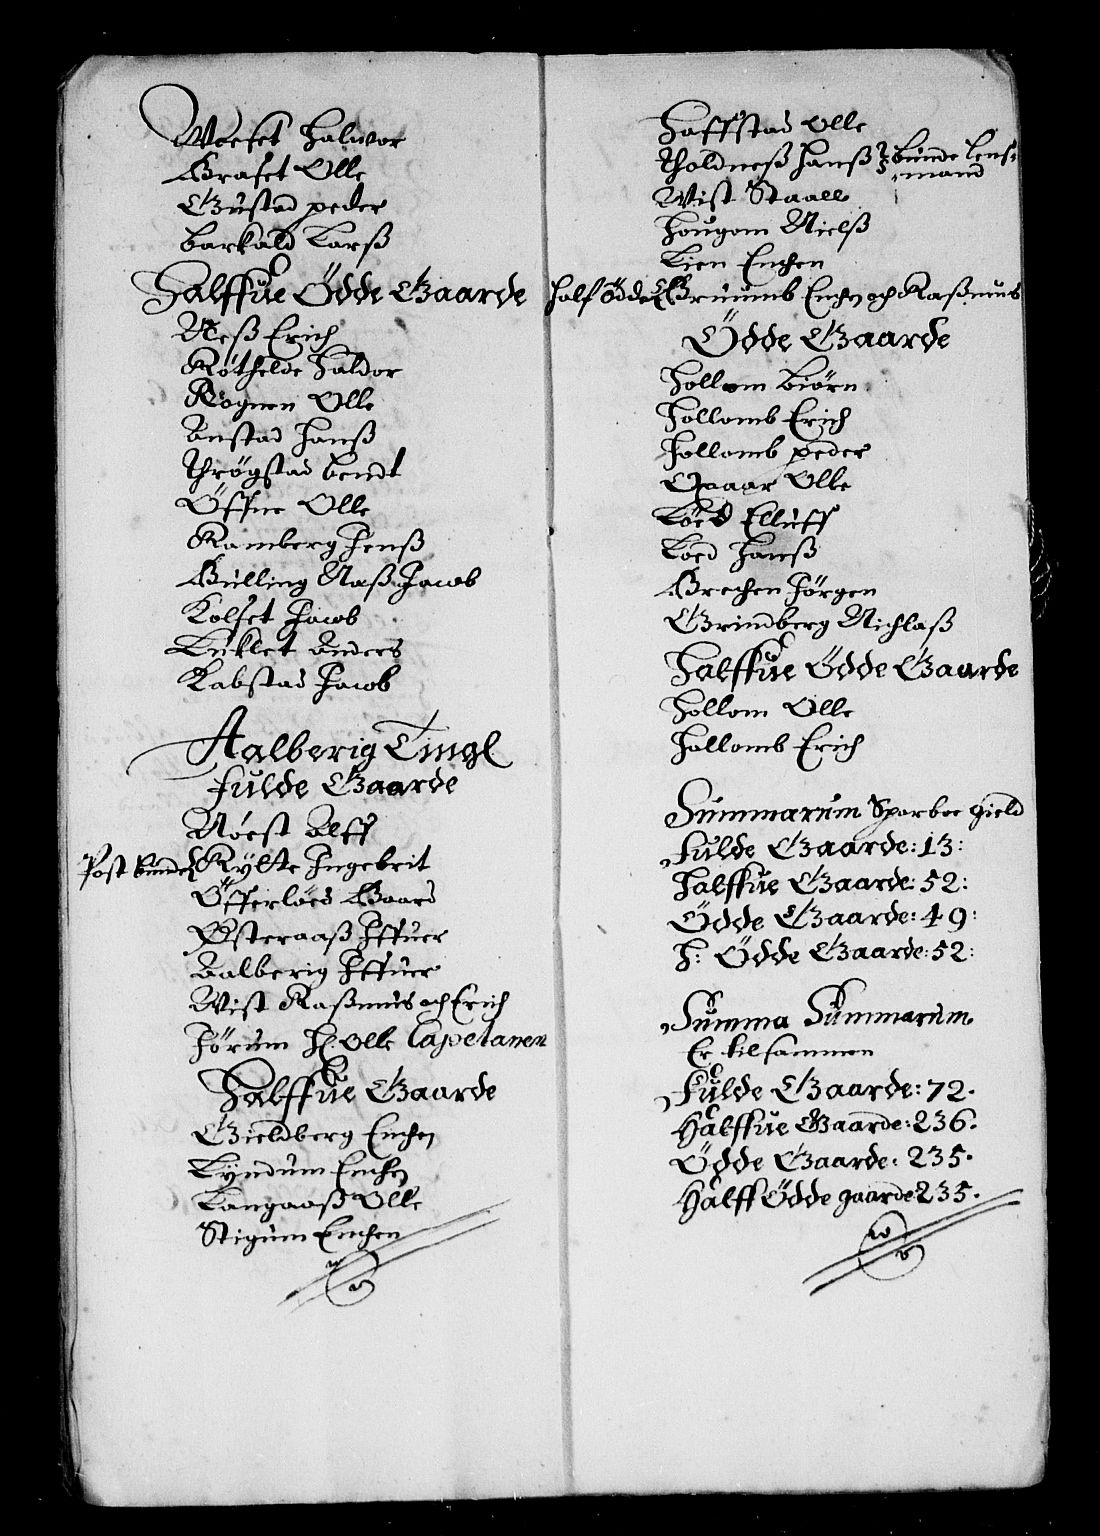 Woeset Halwor
Graset Olle
Gustad peder
barkald Larß
Halffue Ödde Gaarde
Neß Erich
Röthelde Haldor
Rognen Olle
Anstad Hanß
Thrögstad bendt
Öffne Olle
Ramberg Jenß
Gulling Naß Jacob
Kolset Jacob
Lucklet Anders
Kabstad Jacob
Aalberig Tingl
Fulde Gaarde
Nöest Alff
Post bunde Rylte Ingebrit
Öfferlöed Gaard
Østeraaß Iffuer
Aalberig Iffuer
Wist Raßmus och Erich
Jörum H: Olle Capetanen
Halffue Gaarde
Gieldberg Enchen
Lyndum Enchen
Langaaß Olle
Stigum Enchen
Haffstad Olle
Tholdneß Hanß bunde lens-
mand
Wist Staall
Hougom Nielß
Lien Enchen
Half ödde Gruumb Enchen och Raßmus
Ödde Gaarde
Hollom biörn
Hollomb Erich
Hollomb peder
Quaar Olle
Löed Elluff
Löed Hanß
Grechen Jörgen
Grindberg Nichlaß
Halffue Ödde Gaarde
Hollom Olle
Hollomb Erich
Summarum Sparboe gield
Fulde Gaarde: 13:
Halffue Gaarde: 52:
Ödde Gaarde: 49:
H: Ödde Gaarde: 52:
Summa Summarum
Er tilsammen
Fulde Gaarde: 72.
Halffue Gaarde: 236.
Ödde Gaarde: 235.
Halff Ödde gaarde 235.